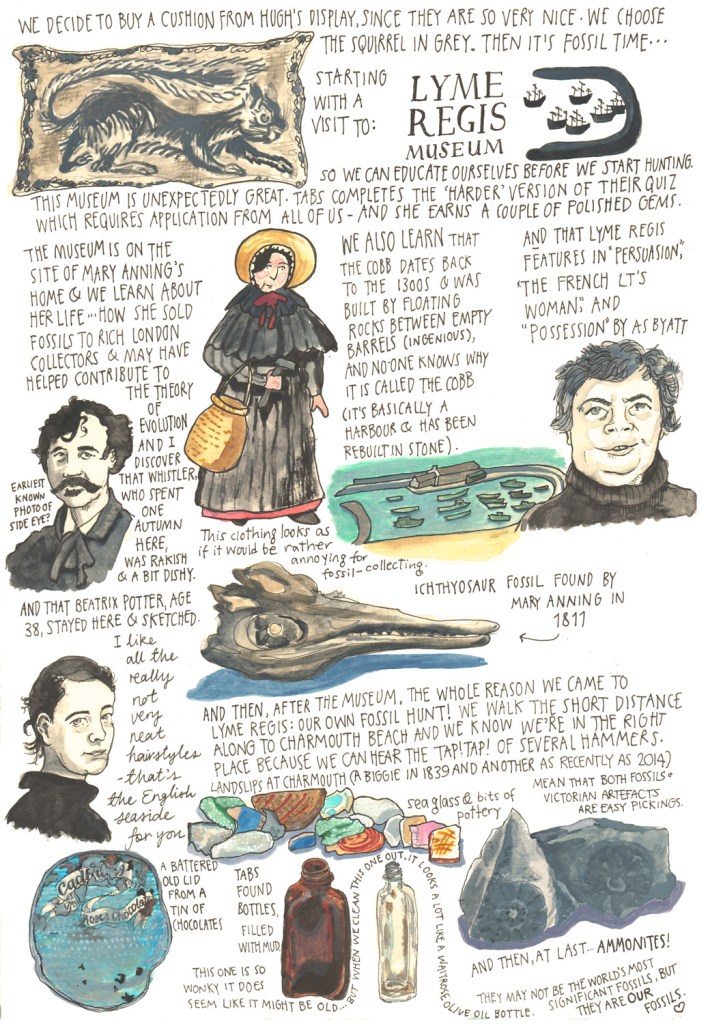 WE DECIDE TO BUY A CUSHION FROM HUGH'S DISPLAY, SINCE THEY ARE SO VERY NICE. WE CHOOSE
THE SQUIRREL IN GREY. THEN IT'S FOSSIL TIME...
STARTING
WITH A
VISIT TO:
LYME
REGIS
MUSEUM
SO WE CAN EDUCATE OURSELVES BEFORE WE START HUNTING.
THIS MUSEUM IS UNEXPECTEDLY GREAT. TABS COMPLETES THE 'HARDER' VERSION OF THEIR QUIZ
WHICH REQUIRES APPLICATION FROM ALL OF US - AND SHE EARNS A COUPLE OF POLISHED GEMS.
THE MUSEUM IS ON THE
SITE OF MARY ANNING'S
HOME & WE LEARN ABOUT
HER LIFE... HOW SHE SOLD
FOSSILS TO RICH LONDON
COLLECTORS & MAY HAVE
HELPED CONTRIBUTE TO
THE THEORY
OF
EVOLUTION
AND I
DISCOVER
THAT WHISTLER,
WHO SPENT
ONE
AUTUMN
HERE,
WAS RAKISH
& A BIT DISHY.
EARLIEST
KNOWN
PHOTO OF
SIDE EYE?
This clothing looks as
if it would be rather
annoying for
fossil-collecting.
WE ALSO LEARN THAT
THE COBB DATES BACK
TO THE 1300S & WAS
BUILT BY FLOATING
ROCKS BETWEEN EMPTY
BARRELS (INGENIOUS),
AND NO-ONE KNOWS WHY
IT IS CALLED THE COBB
(IT'S BASICALLY A
HARBOUR & HAS BEEN
REBUILT IN STONE).
AND THAT LYME REGIS
FEATURES IN "PERSUASION,"
"THE FRENCH LT'S
WOMAN," AND
"POSSESSION" BY AS BYATT
AND THAT BEATRIX POTTER, AGE
38, STAYED HERE & SKETCHED.
I like
all the
really
not
very
neat
hairstyles
- that's
the English
seaside
for you
ICHTHYOSAUR FOSSIL FOUND BY
MARY ANNING IN
1811
AND THEN, AFTER THE MUSEUM, THE WHOLE REASON WE CAME TO
LYME REGIS: OUR OWN FOSSIL HUNT! WE WALK THE SHORT DISTANCE
ALONG TO CHARMOUTH BEACH AND WE KNOW WE'RE IN THE RIGHT
PLACE BECAUSE WE CAN HEAR THE TAP! TAP! OF SEVERAL HAMMERS.
LANDSLIPS AT CHARMOUTH (A BIGGIE IN 1839 AND ANOTHER AS RECENTLY AS 2014)
MEAN THAT BOTH FOSSILS +
VICTORIAN ARTEFACTS
ARE EASY PICKINGS.
sea glass & bits of
pottery
Cadbury
Roses Chocolates
A BATTERED
OLD LID
FROM A
TIN OF
CHOCOLATES
TABS
FOUND
BOTTLES,
FILLED
WITH MUD
THIS ONE IS SO
WONKY IT DOES
SEEM LIKE IT MIGHT BE OLD... BUT WHEN WE CLEAN THIS ONE OUT, IT LOOKS A LOT LIKE A WAITROSE OLIVE OIL BOTTLE.
AND THEN, AT LAST... AMMONITES!
THEY MAY NOT BE THE WORLD'S MOST
SIGNIFICANT FOSSILS, BUT
THEY ARE OUR
FOSSILS.